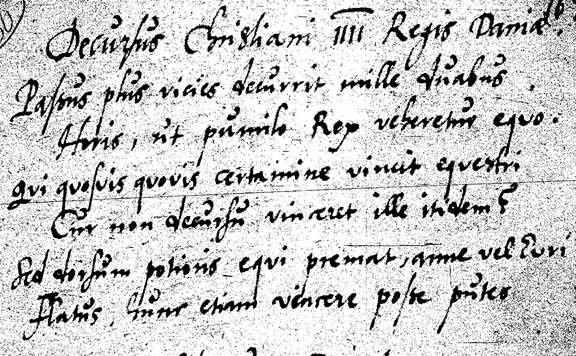 Decursus Christiani IIII Regis Daniæ.
Passus plus vicies decurrit mille duabus
Horis, ut pumilo Rex veheretur equo.
Qui quosvis quovis certamine vincit equestri
Cur non decursu vinceret ille itidem?
Sed dorsum potioris equi premat, anne vel Euri
Flatus, hunc etiam vincere posse putes